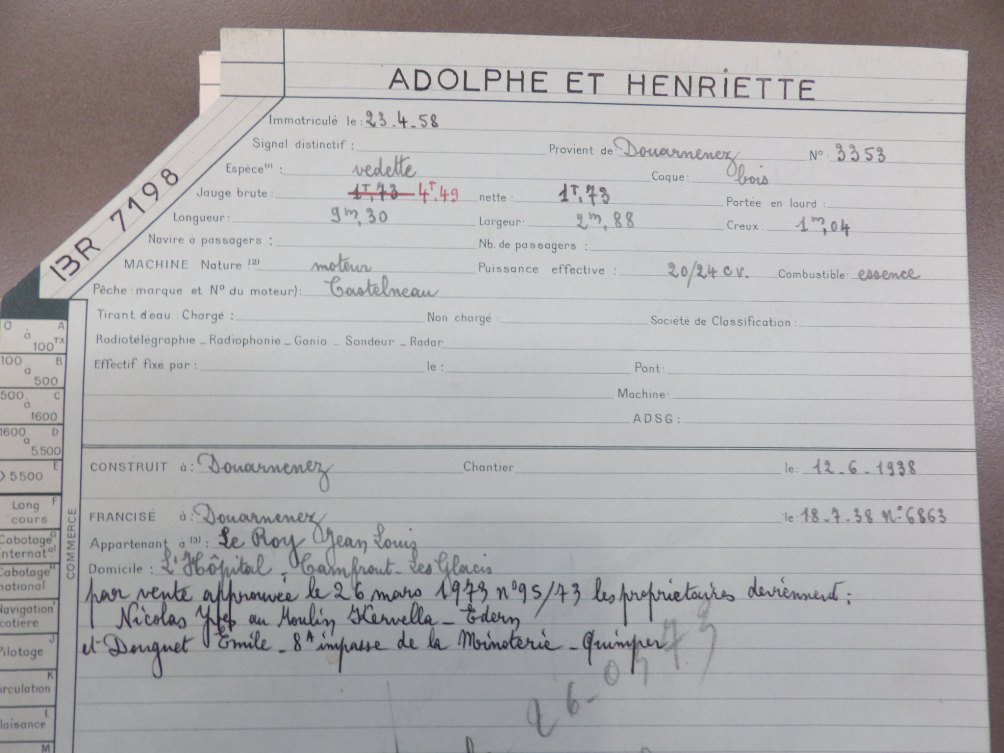 ADOLPHE ET HENRIETTE
BR 7198
Immatriculé le : 23.4.58
Signal distinctif : Provient de Douarnenez No. 3353
Espèce(1) : vedette Coque : bois
Jauge brute : 1T,73 4T.49 nette : 1T,73 Portée en lourd :
Longueur : 9m,30 Largeur : 2m,88 Creux : 1m,04
Navire à passagers : Nb. de passagers :
MACHINE Nature (2) moteur Puissance effective : 20/24 cv. Combustible essence
Pêche : marque et No du moteur) : Castelneau
Tirant d'eau Chargé : Non chargé Société de Classification :
Radiotélégraphie _ Radiophonie _ Gonio _ Sondeur _ Radar
Effectif fixé par : le : Pont :
Machine :
ADSG :
CONSTRUIT à : Douarnenez Chantier le : 12.6.1938
FRANCISÉ à : Douarnenez le 18.7.38 No 6863
Appartenant à (3) : Le Roy Jean Louis
Domicile : L'Hôpital, Camfrout - Les Glacis
par vente approuvée le 26 mars 1973 n°95/73 les propriétaires deviennent :
Nicolas Yves au Moulin Kervella - Edern
et Douguet Emile - 8A impasse de la Minoterie - Quimper
26-04 73
O à 100 TX A
100 à 500 B
500 à 1600 C
1600 à 5500 D
> 5500 E
Long cours F
Cabotage internatal G
Cabotage national H
Navigation cotière I
Pilotage J
Circulation K
Plaisance L
M
COMMERCE